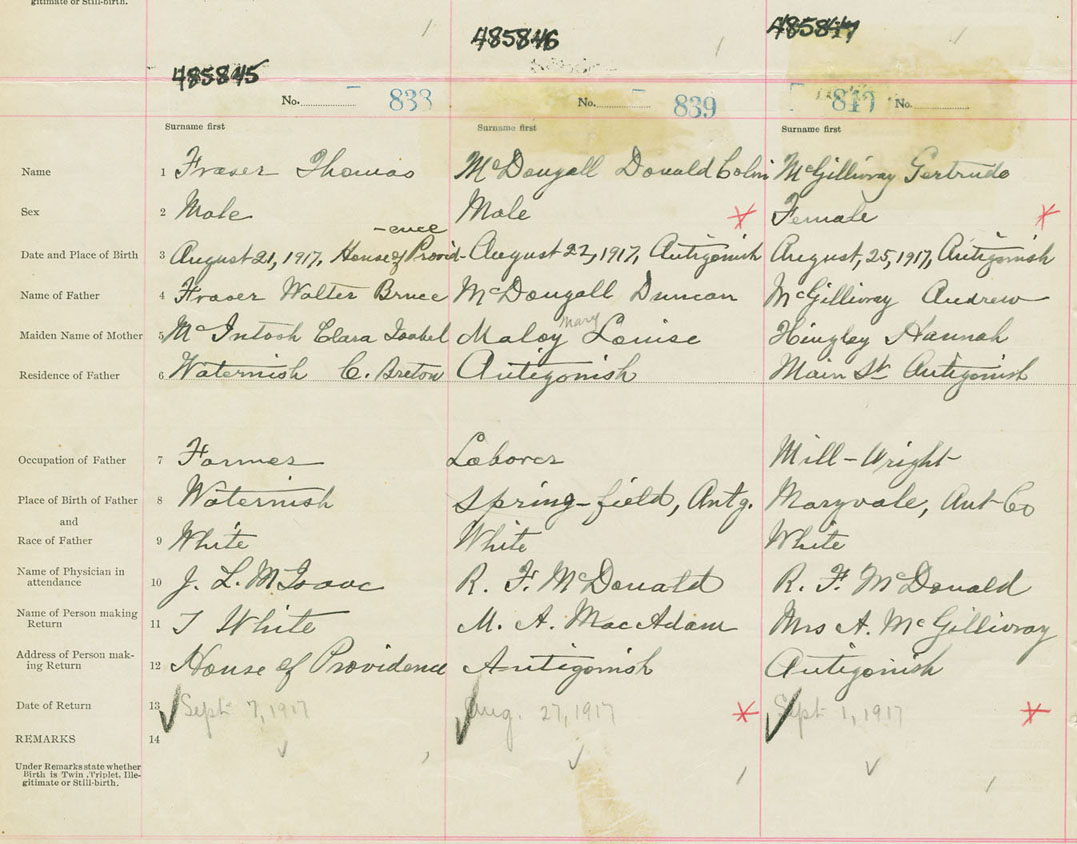 gitimate or Still-birth.
485845 485846 485847
No. 838 No. 839 840 No.
Surname first Surname first Surname first
Name 1 Fraser Thomas McDougall Donald Colin McGillivray Gertrude
Sex 2 Male Male Female
-ence
Date and Place of Birth 3 August 21, 1917, House of Provid- August 22, 1917, Antigonish August, 25, 1917, Antigonish
Name of Father 4 Fraser Walter Bruce McDougall Duncan McGillivray Andrew
Mary
Maiden Name of Mother 5 McIntosh Clara Isabel Maloy Louise Hingley Hannah
Residence of Father 6 Waternish C. Breton Antigonish Main St Antigonish
Occupation of Father 7 Farmer Laborer Mill-Wright
Place of Birth of Father 8 Waternish Spring-field, Antg. Maryvale, Ant Co
and
Race of Father 9 White White White
Name of Physician in
attendance 10 J. L. McIsaac R. F. McDonald R. F. McDonald
Name of Person making
Return 11 T White M. A. MacAdam Mrs A. McGillivray
Address of Person mak-
ing Return 12 House of Providence Antigonish Antigonish
Date of Return 13 Sept 7, 1917 Aug. 27, 1917 Sept 1, 1917
REMARKS 14
Under Remarks state whether
Birth is Twin, Triplet, Ille-
gitimate or Still-birth.